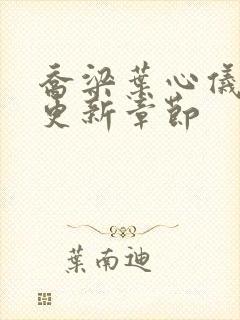 喬梁葉心儀
更新章節
葉南迪